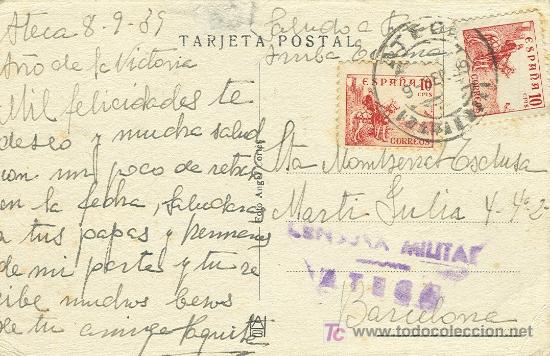 Ateca 8-9-39
Año de la Victoria
Mil felicidades te
deseo y mucha salud
con un poco de
en la fecha, Saludara
a tus papas y hermanos
de mi parte y tu re
cibe muchos besos
de tu amiga Paquita
Saludo a Franco
Arriba España
TARJETA POSTAL
ESPAÑA
10
CTS
CORREOS
ESPAÑA
10
CTS
CORREOS
Sta Montserrat Esclusa
Marti Julia 4-4º 2ª
CENSURA MILITAR
ATECA
Barcelona
Foto Angel Lones
TC www.todocoleccion.net